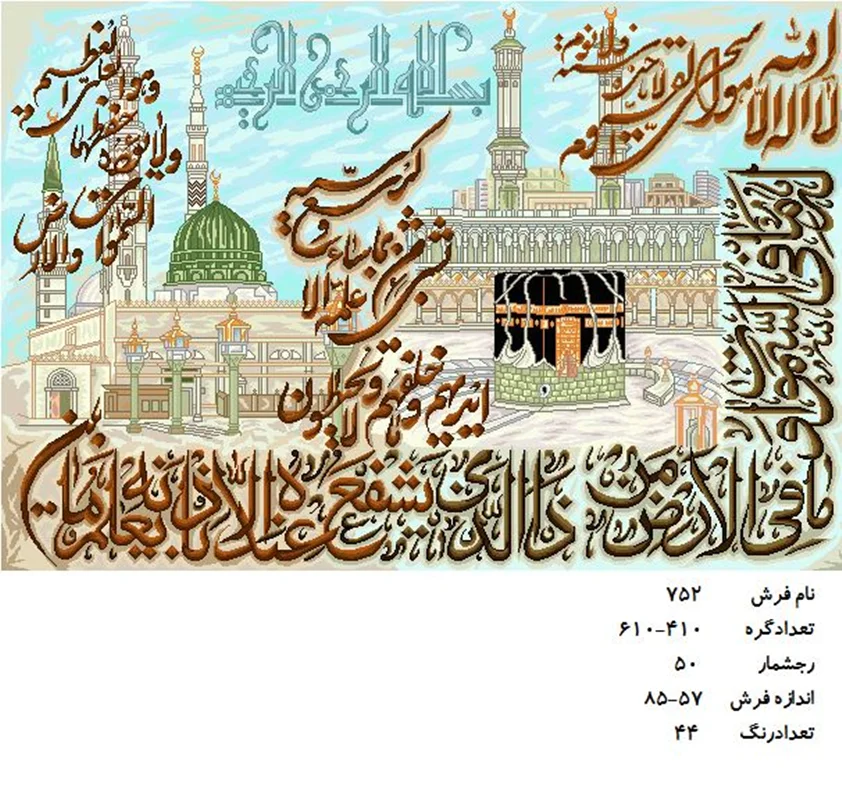 بسم الله الرحمن الرحیم
الله لا اله الا
هو الحی القیوم لا تاخذه سنة ولا نوم
له ما فی السموات و
ما فی الارض من ذا الذی یشفع عنده الا باذنه یعلم ما بین
ایدیهم وما خلفهم ولا یحیطون
بشیء من علمه الا بما شاء وسع کرسیه
السموات والارض
ولا یوده حفظهما
وهو العلی العظیم
نام فرش ۷۵۲
تعدادگره ۶۱۰-۴۱۰
رجشمار ۵۰
اندازه فرش ۸۵-۵۷
تعدادرنگ ۴۴